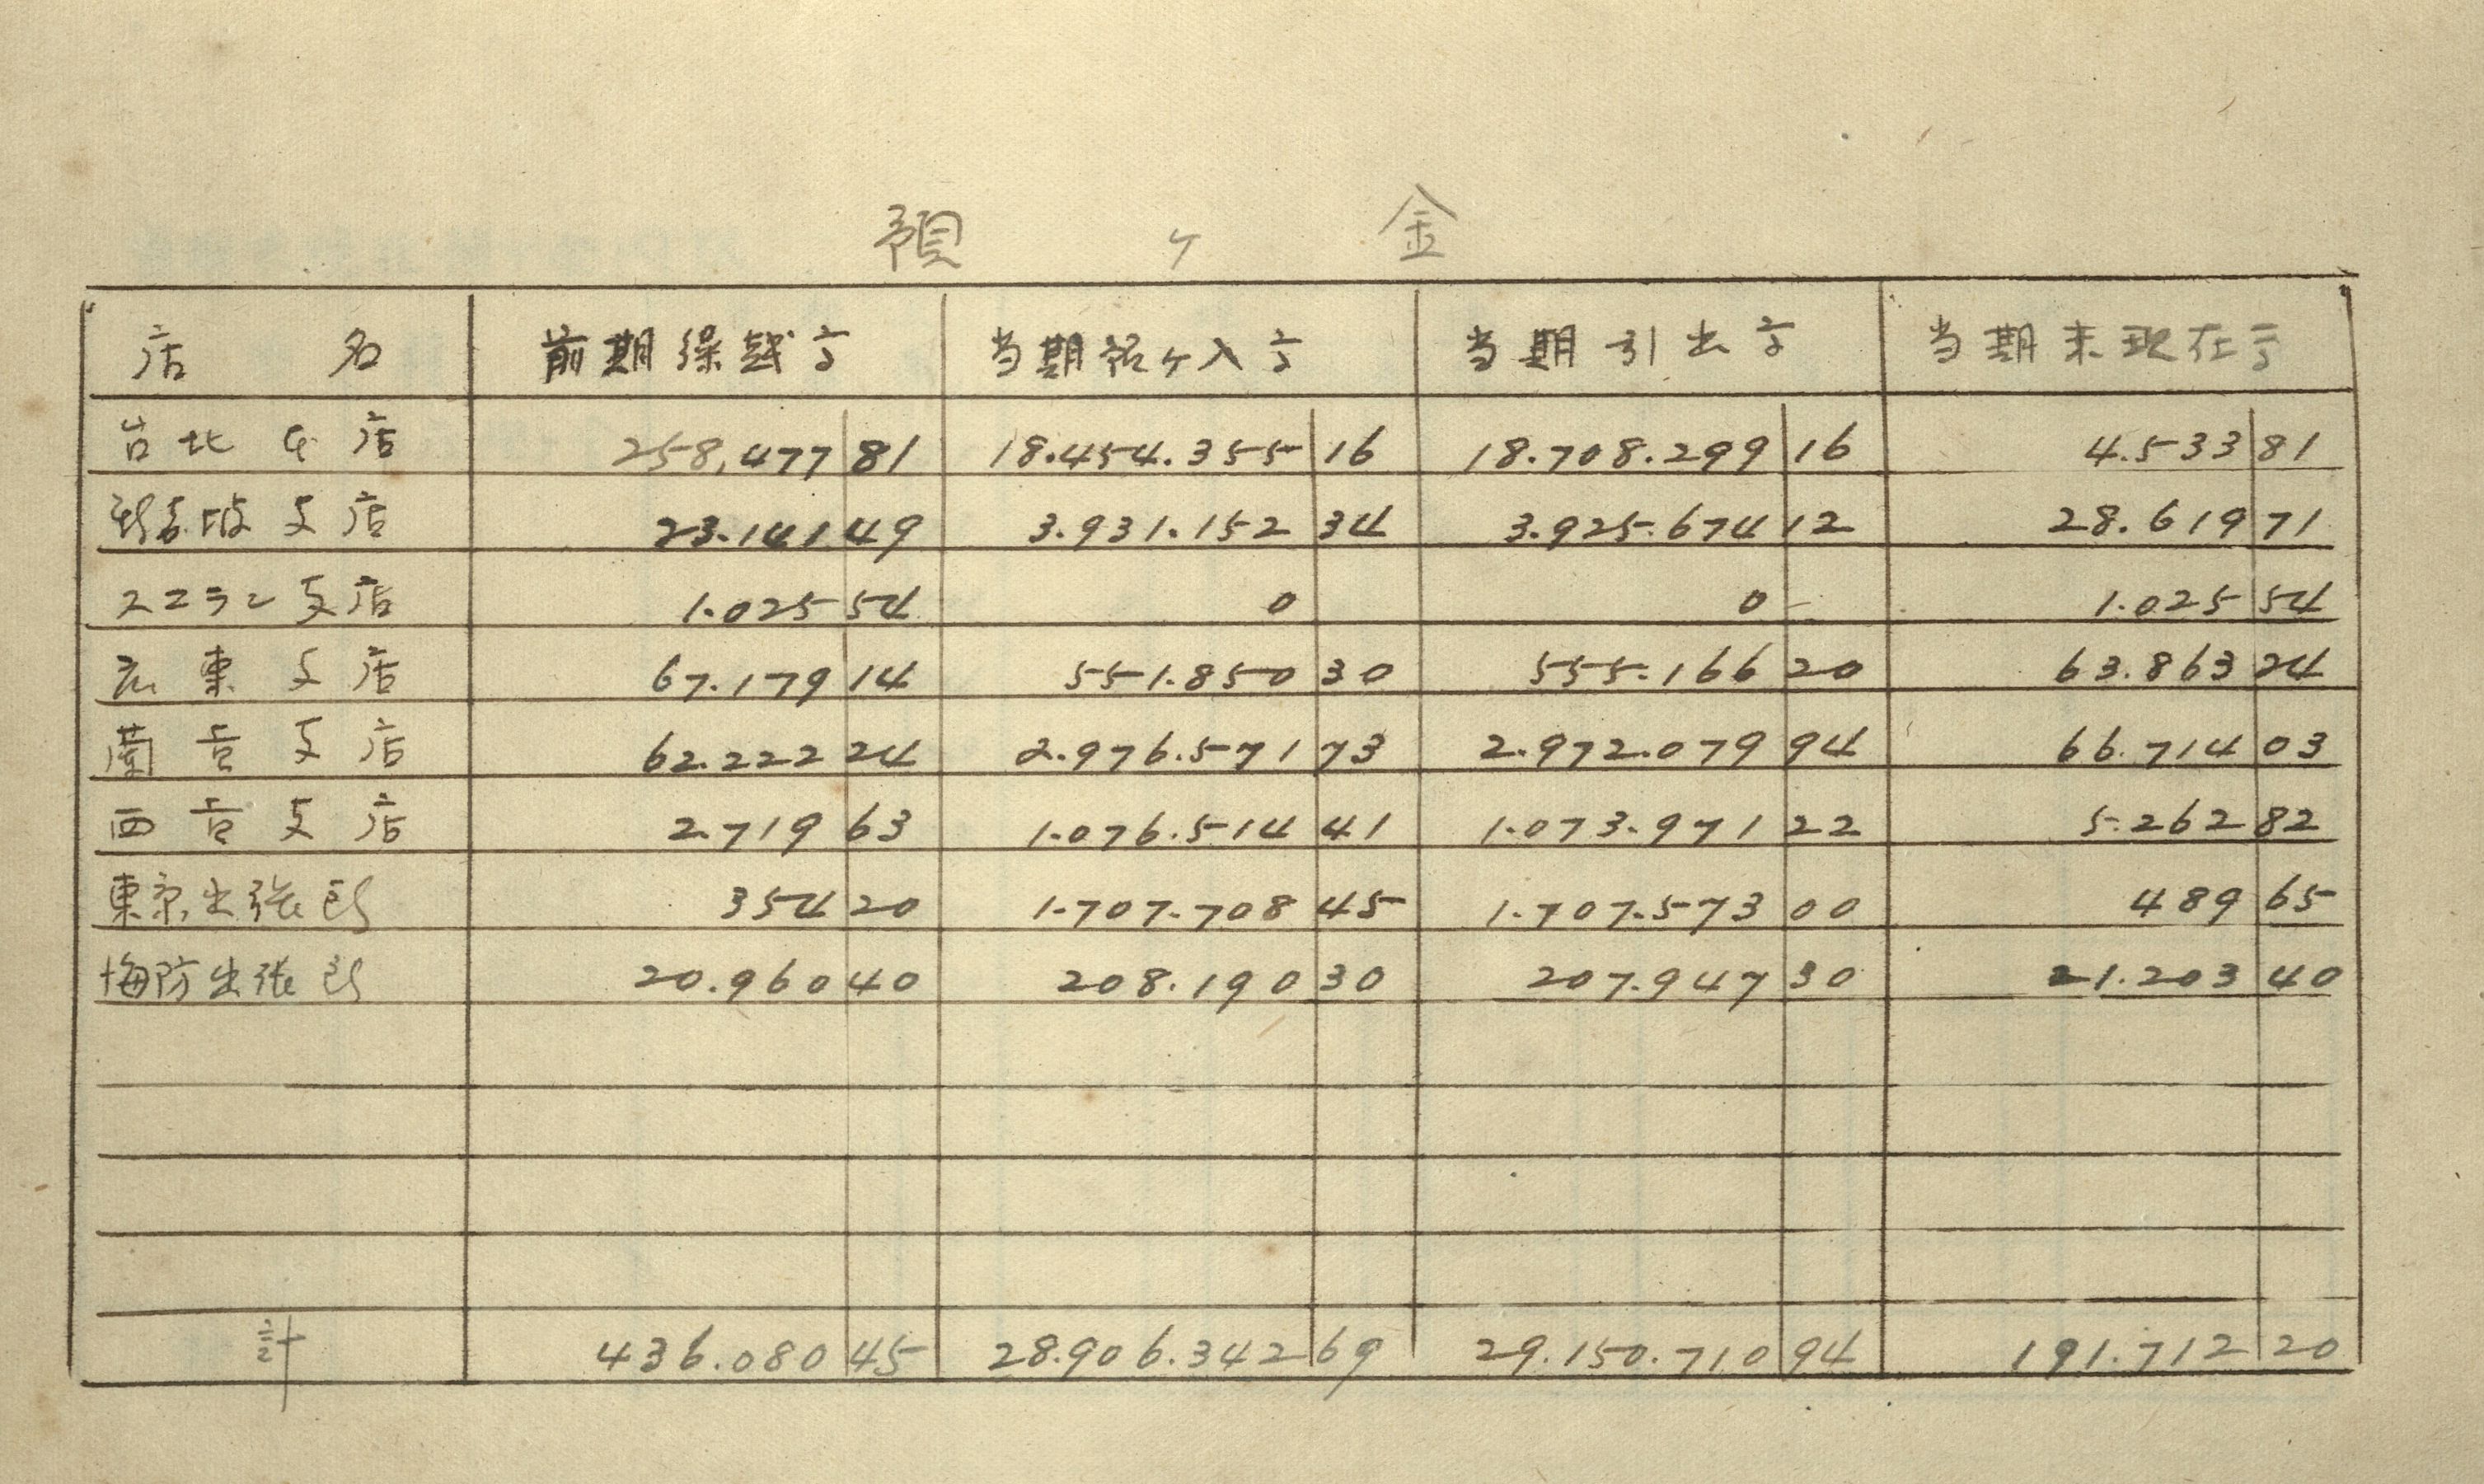 預ケ金
店名 前期繰越高 当期預ケ入高 当期引出高 当期末現在高
台北本店 258,477 81 18.454.355 16 18.708.299 16 4.533 81
新嘉坡支店 23.141 49 3.931.152 34 3.925.674 12 28.619 71
スマラン支店 1.025 54 0 0 1.025 54
広東支店 67.179 14 551.850 30 555.166 20 63.863 24
蘭貢支店 62.222 24 2.976.571 73 2.972.079 94 66.714 03
西貢支店 2.719 63 1.076.514 41 1.073.971 22 5.262 82
東京出張所 354 20 1.707.708 45 1.707.573 00 489 65
海防出張所 20.960 40 208.190 30 207.947 30 21.203 40
計 436.080 45 28.906.342 69 29.150.710 94 191.712 20